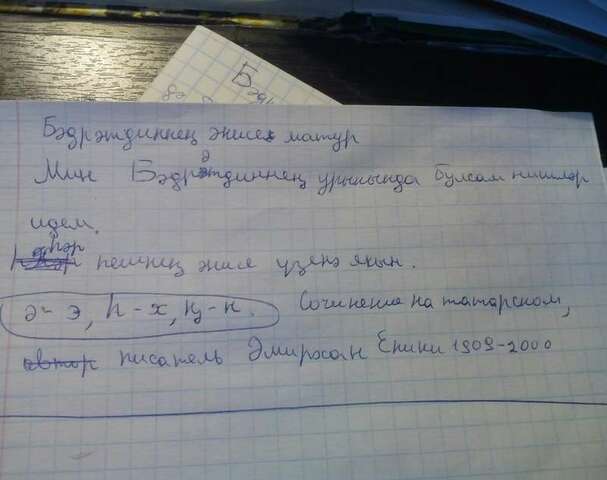 Бә
Бәдрәтдиннең әнисе матур
Мин Бәдрәтдиннең урынында булсам нишләр
идем.
һәр кешнең әнисе үзенә якын.
ә - э, һ - х, ң - н. Сочинение на татарском,
автор писатель Әмирхан Еники 1909-2000